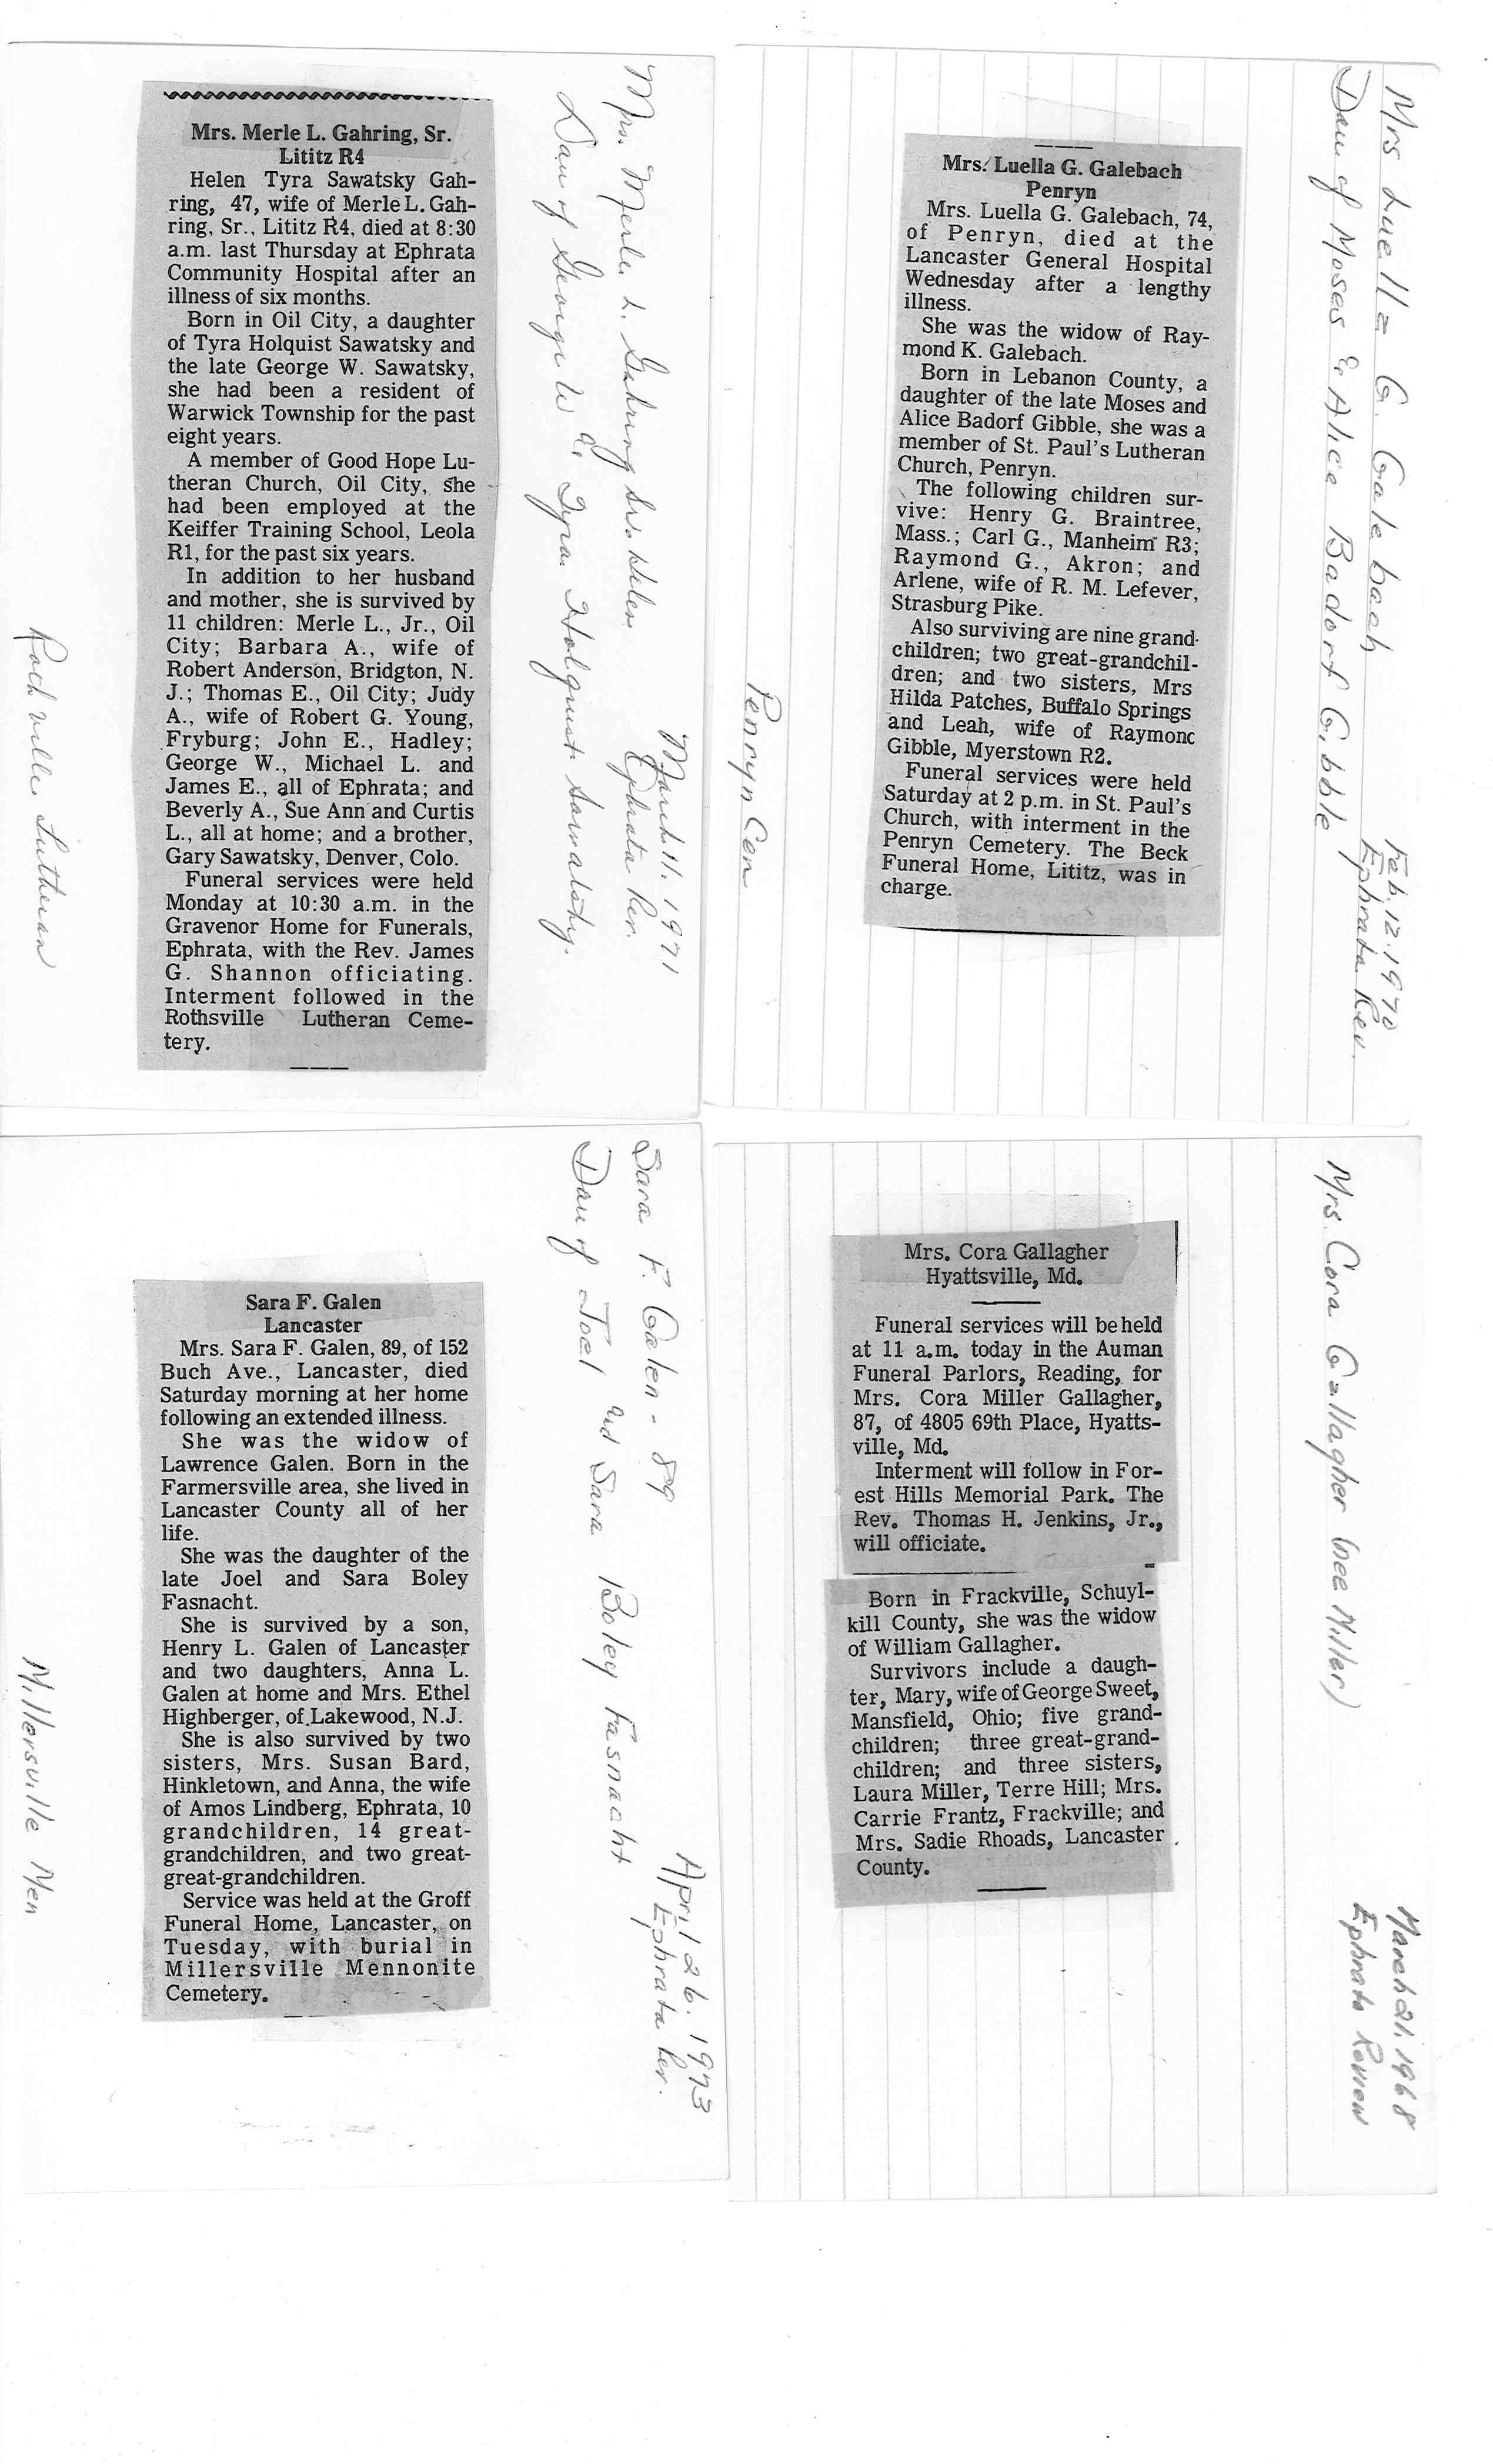 Mrs. Merle L. Gahring, Sr.
Lititz R4
Helen Tyra Sawatsky Gah-
ring, 47, wife of Merle L. Gah-
ring, Sr., Lititz R4, died at 8:30
a.m. last Thursday at Ephrata
Community Hospital after an
illness of six months.
Born in Oil City, a daughter
of Tyra Holquist Sawatsky and
the late George W. Sawatsky,
she had been a resident of
Warwick Township for the past
eight years.
A member of Good Hope Lu-
theran Church, Oil City, she
had been employed at the
Keiffer Training School, Leola
R1, for the past six years.
In addition to her husband
and mother, she is survived by
11 children: Merle L., Jr., Oil
City; Barbara A., wife of
Robert Anderson, Bridgton, N.
J.; Thomas E., Oil City; Judy
A., wife of Robert G. Young,
Fryburg; John E., Hadley;
George W., Michael L. and
James E., all of Ephrata; and
Beverly A., Sue Ann and Curtis
L., all at home; and a brother,
Gary Sawatsky, Denver, Colo.
Funeral services were held
Monday at 10:30 a.m. in the
Gravenor Home for Funerals,
Ephrata, with the Rev. James
G. Shannon officiating.
Interment followed in the
Rothsville Lutheran Ceme-
tery.
Mrs. Merle L. Gahring Sr. nee Helen
Dau of George W & Tyra Holquist Sawatsky.
March 11. 1971
Ephrata Rev.
Lutheran
Mrs. Luella G. Galebach
Penryn
Mrs. Luella G. Galebach, 74,
of Penryn, died at the
Lancaster General Hospital
Wednesday after a lengthy
illness.
She was the widow of Ray-
mond K. Galebach.
Born in Lebanon County, a
daughter of the late Moses and
Alice Badorf Gibble, she was a
member of St. Paul's Lutheran
Church, Penryn.
The following children sur-
vive: Henry G. Braintree,
Mass.; Carl G., Manheim R3;
Raymond G., Akron; and
Arlene, wife of R. M. Lefever,
Strasburg Pike.
Also surviving are nine grand-
children; two great-grandchil-
dren; and two sisters, Mrs
Hilda Patches, Buffalo Springs
and Leah, wife of Raymond
Gibble, Myerstown R2.
Funeral services were held
Saturday at 2 p.m. in St. Paul's
Church, with interment in the
Penryn Cemetery. The Beck
Funeral Home, Lititz, was in
charge.
Mrs Luella G. Galebach
Dau of Moses & Alice Badorf Gibble
Feb. 12. 1970
Ephrata Rev.
Penryn Cem
Sara F. Galen
Lancaster
Mrs. Sara F. Galen, 89, of 152
Buch Ave., Lancaster, died
Saturday morning at her home
following an extended illness.
She was the widow of
Lawrence Galen. Born in the
Farmersville area, she lived in
Lancaster County all of her
life.
She was the daughter of the
late Joel and Sara Boley
Fasnacht.
She is survived by a son,
Henry L. Galen of Lancaster
and two daughters, Anna L.
Galen at home and Mrs. Ethel
Highberger, of Lakewood, N.J.
She is also survived by two
sisters, Mrs. Susan Bard,
Hinkletown, and Anna, the wife
of Amos Lindberg, Ephrata, 10
grandchildren, 14 great-
grandchildren, and two great-
great-grandchildren.
Service was held at the Groff
Funeral Home, Lancaster, on
Tuesday, with burial in
Millersville Mennonite
Cemetery.
Sara F. Galen - 89
Dau of Joel and Sara Boley Fasnacht
April 26. 1973
Ephrata Rev.
Millersville Men
Mrs. Cora Gallagher
Hyattsville, Md.
Funeral services will be held
at 11 a.m. today in the Auman
Funeral Parlors, Reading, for
Mrs. Cora Miller Gallagher,
87, of 4805 69th Place, Hyatts-
ville, Md.
Interment will follow in For-
est Hills Memorial Park. The
Rev. Thomas H. Jenkins, Jr.,
will officiate.
Born in Frackville, Schuyl-
kill County, she was the widow
of William Gallagher.
Survivors include a daugh-
ter, Mary, wife of George Sweet,
Mansfield, Ohio; five grand-
children; three great-grand-
children; and three sisters,
Laura Miller, Terre Hill; Mrs.
Carrie Frantz, Frackville; and
Mrs. Sadie Rhoads, Lancaster
County.
Mrs. Cora Gallagher (nee Miller)
March 21, 1968
Ephrata Review